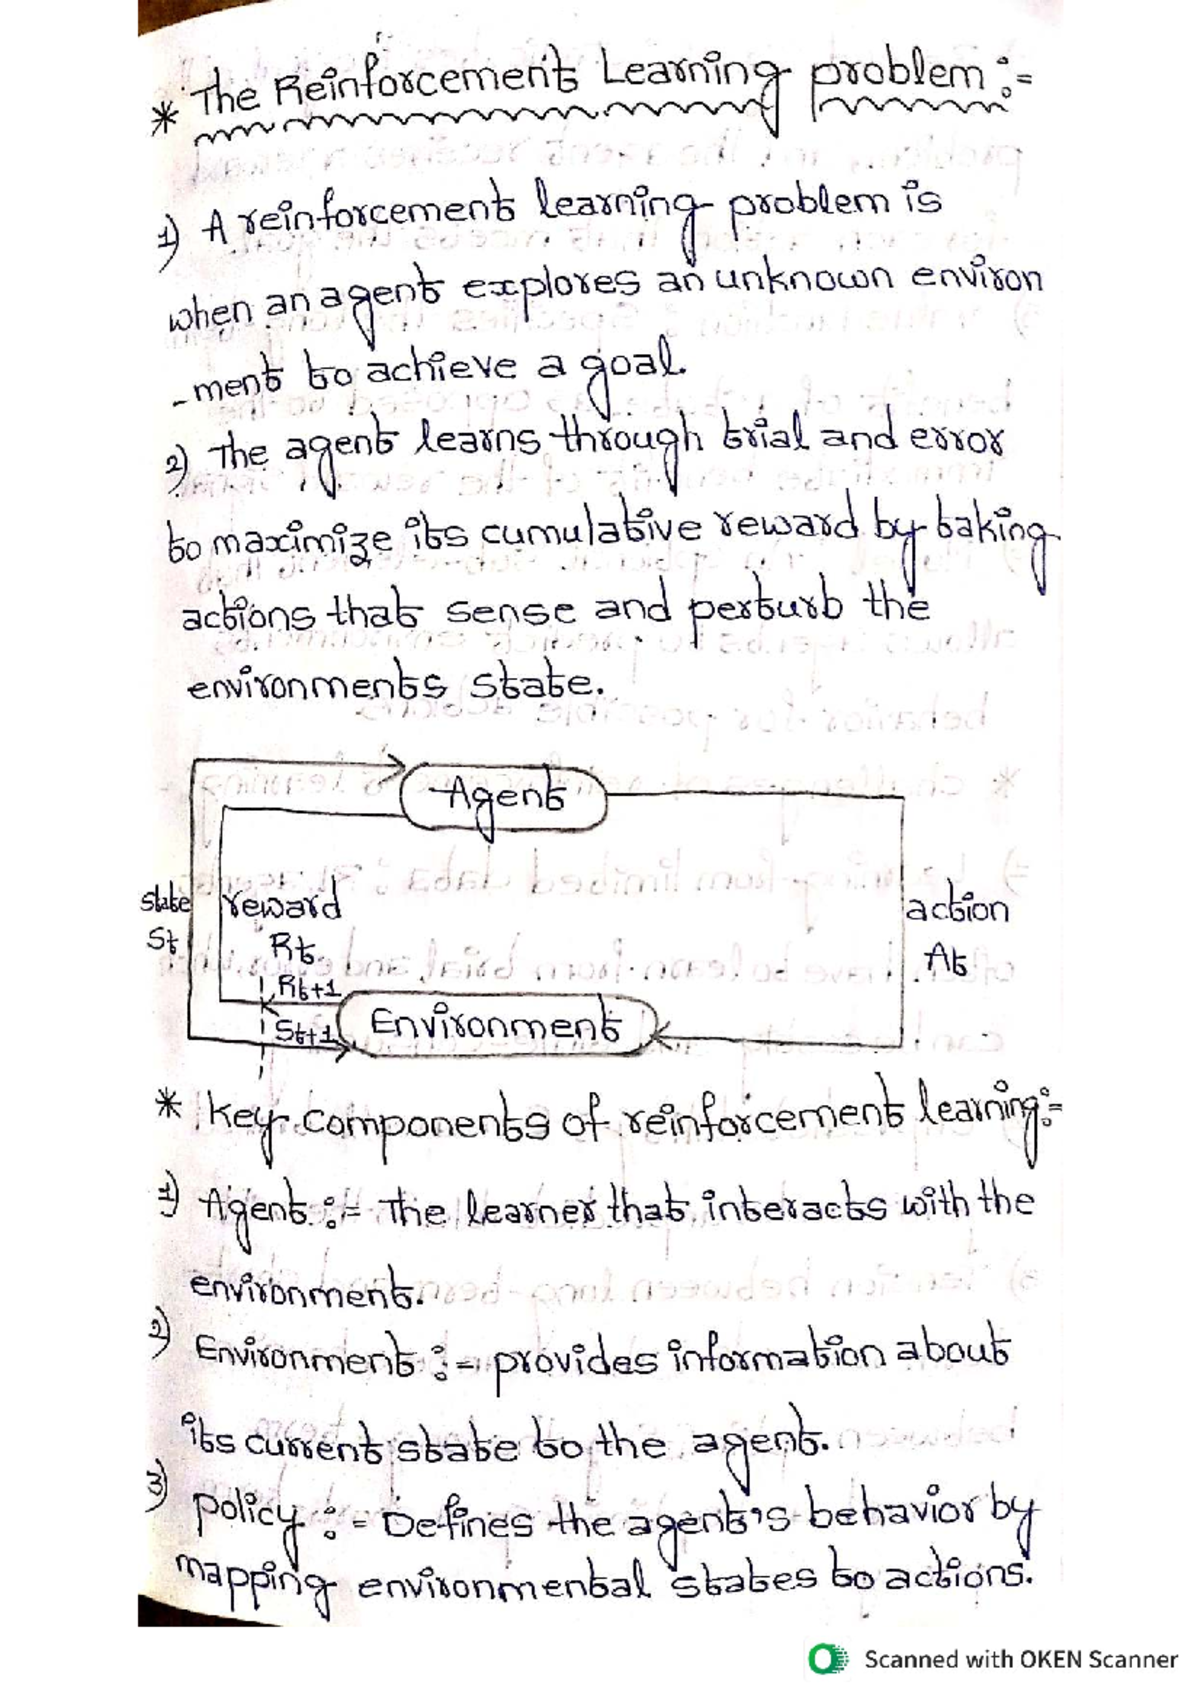 * The Reinforcement Learning problem :=
1) A reinforcement learning problem is
when an agent explores an unknown environ
-ment to achieve a goal.
2) The agent learns through trial and error
to maximize its cumulative reward by taking
actions that sense and perturb the
environments state.
Agent
state
St
reward
Rt
action
At
Rt+1
St+1
Environment
* Key components of reinforcement learning:=
1) Agent := The learner that interacts with the
environment.
2) Environment :- provides information about
its current state to the agent.
3) policy :- Defines the agent's behavior by
mapping environmental states to actions.
Scanned with OKEN Scanner